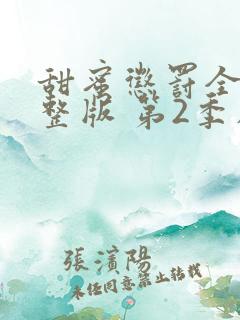 甜蜜懲罰全
整版 第2季
張濱陽
未经同意禁止转载